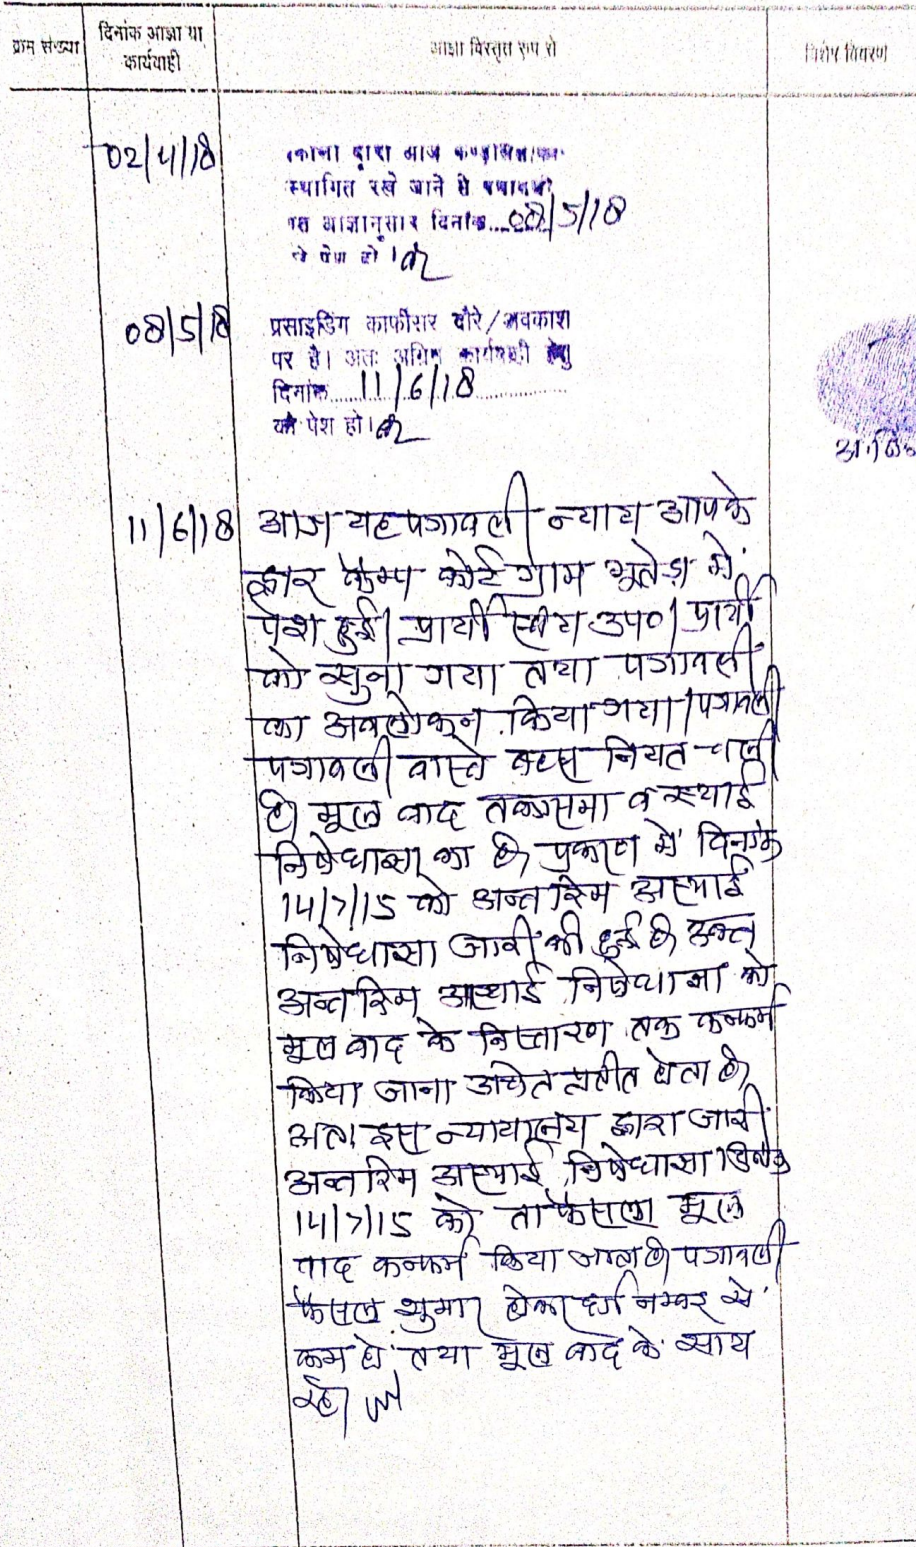 क्रम संख्या
दिनांक आज्ञा या कार्यवाही
आज्ञा विस्तृत रूप से
विशेष विवरण
02/4/18
द्वारा आज
स्थगित रखे जाने से
आज्ञानुसार दिनांक...08/5/18
को पेश हो।
08/5/18
प्रसाइडिंग ऑफीसर दौरे/अवकाश
पर है। अतः अग्रिम कार्यवाही हेतु
दिनांक.....11/6/18..........
को पेश हो।
11/6/18
आज यह पत्रावली न्याय आपके
द्वार कैम्प कोर्ट ग्राम में
पेश हुई। प्रार्थी स्वयं उप०। प्रार्थी
को सुना गया तथा पत्रावली
का अवलोकन किया गया। पत्रावली
पत्रावली वास्ते बहस नियत चली
है। मूल वाद तकासमा व स्थाई
निषेधाज्ञा का है, प्रकरण में दिनांक
14/7/15 को अन्तरिम अस्थाई
निषेधाज्ञा जारी की हुई है। उक्त
अन्तरिम अस्थाई निषेधाज्ञा को
मूल वाद के निस्तारण तक कन्फर्म
किया जाना उचित प्रतीत होता है,
अतः इस न्यायालय द्वारा जारी
अन्तरिम अस्थाई निषेधाज्ञा दिनांक
14/7/15 को ता फैसला मूल
वाद कन्फर्म किया जाता है। पत्रावली
फैसल शुमार होकर दर्ज नम्बर से
कम हो तथा मूल वाद के साथ
रहे।